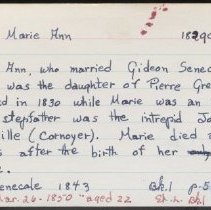 Marie Ann 1829
Ann, who married Gideon Senec
was the daughter of Pierre Gre
ed in 1830 while Marie was an
stepfather was the intrepid Jo
ville (Cornoyer). Marie died
s after the birth of her only
enecale 1843 Bk.1 p.5
Mar. 26-1850 "aged 22 St. L. Bk1